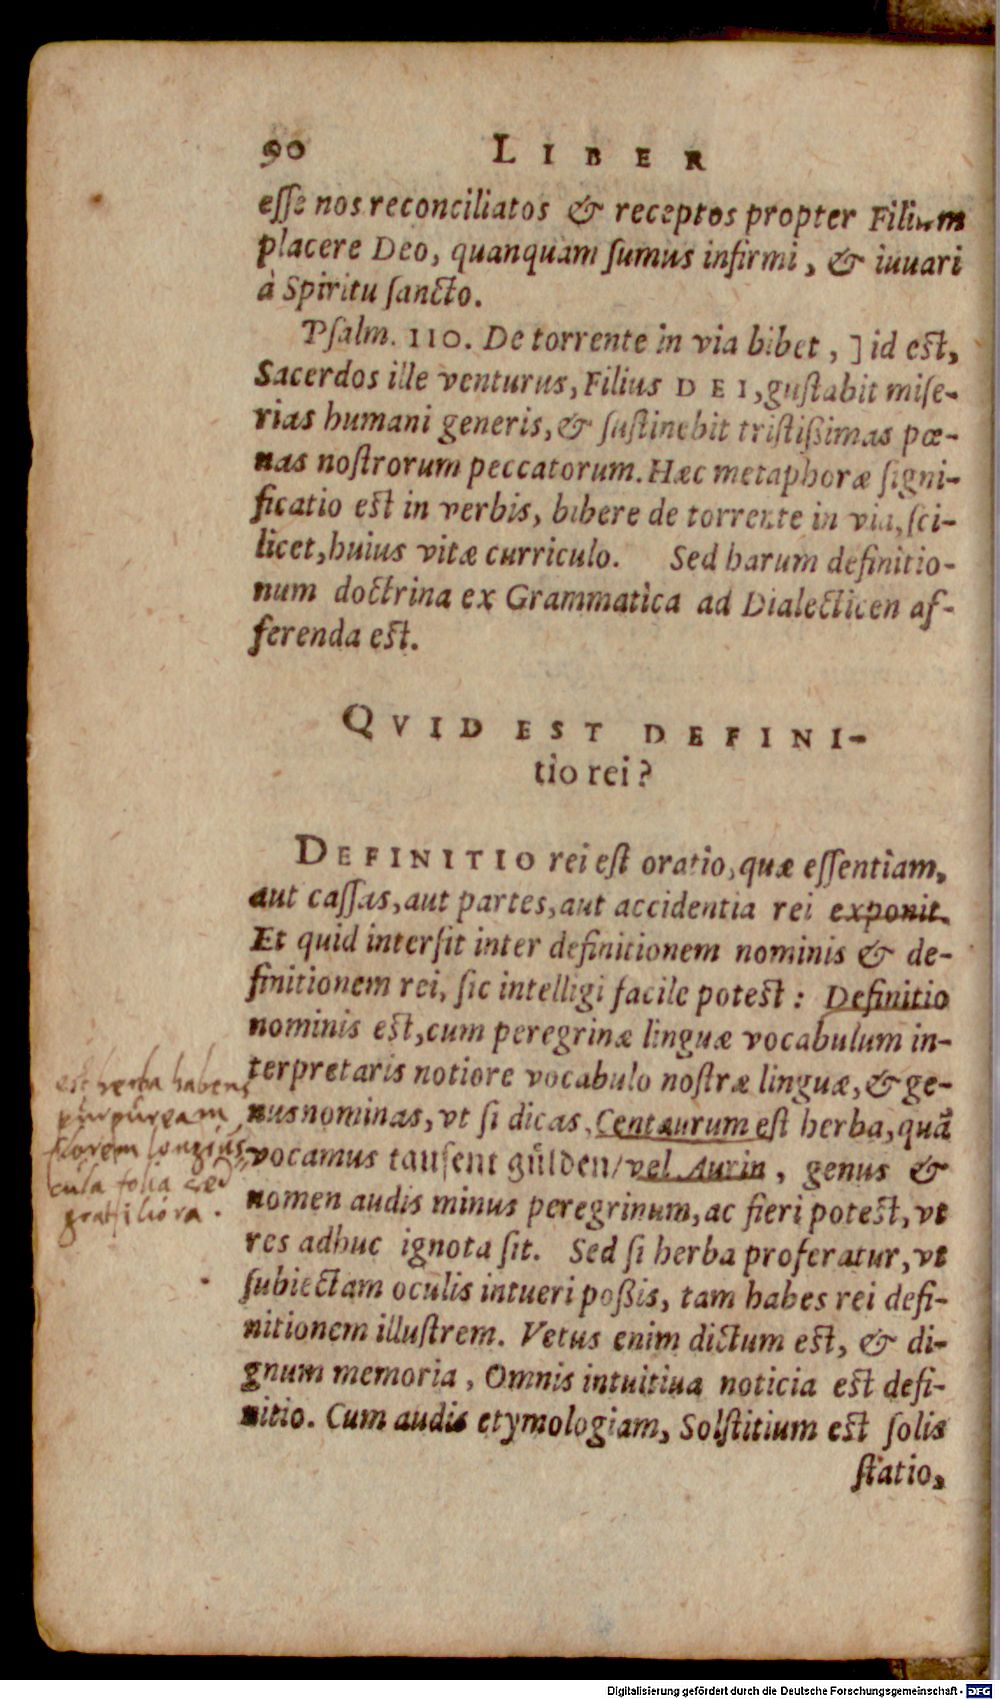 90 LIBER
eſſe nos reconciliatos & receptos propter Filium
placere Deo, quanquam ſumus infirmi, & iuuari
à Spiritu ſancto.
Pſalm. 110. De torrente in via bibet, ] id eſt,
Sacerdos ille venturus, Filius DEI, guſtabit miſe-
rias humani generis, & ſuſtinebit triſtißimas pœ-
nas noſtrorum peccatorum. Hæc metaphoræ ſigni-
ficatio eſt in verbis, bibere de torrente in via, ſci-
licet, huius vitæ curriculo. Sed harum definitio-
num doctrina ex Grammatica ad Dialecticen af-
ferenda eſt.
QVID EST DEFINI-
tio rei?
DEFINITIO rei eſt oratio, quæ eſſentiam,
aut caſſas, aut partes, aut accidentia rei exponit.
Et quid interſit inter definitionem nominis & de-
finitionem rei, ſic intelligi facile poteſt: Definitio
nominis eſt, cum peregrinæ linguæ vocabulum in-
terpretaris notiore vocabulo noſtræ linguæ, & ge-
nus nominas, vt ſi dicas, Centaurum eſt herba, quā
vocamus tauſent guͤlden/ vel Aurin, genus &
nomen audis minus peregrinum, ac fieri poteſt, vt
res adhuc ignota ſit. Sed ſi herba proferatur, vt
ſubiectam oculis intueri poßis, tam habes rei defi-
nitionem illuſtrem. Vetus enim dictum eſt, & di-
gnum memoria, Omnis intuitiua noticia eſt defi-
nitio. Cum audis etymologiam, Solſtitium eſt ſolis
ſtatio,
est herba habens
purpuream
florem longius
cula folia
Digitalisierung gefördert durch die Deutsche Forschungsgemeinschaft - DFG